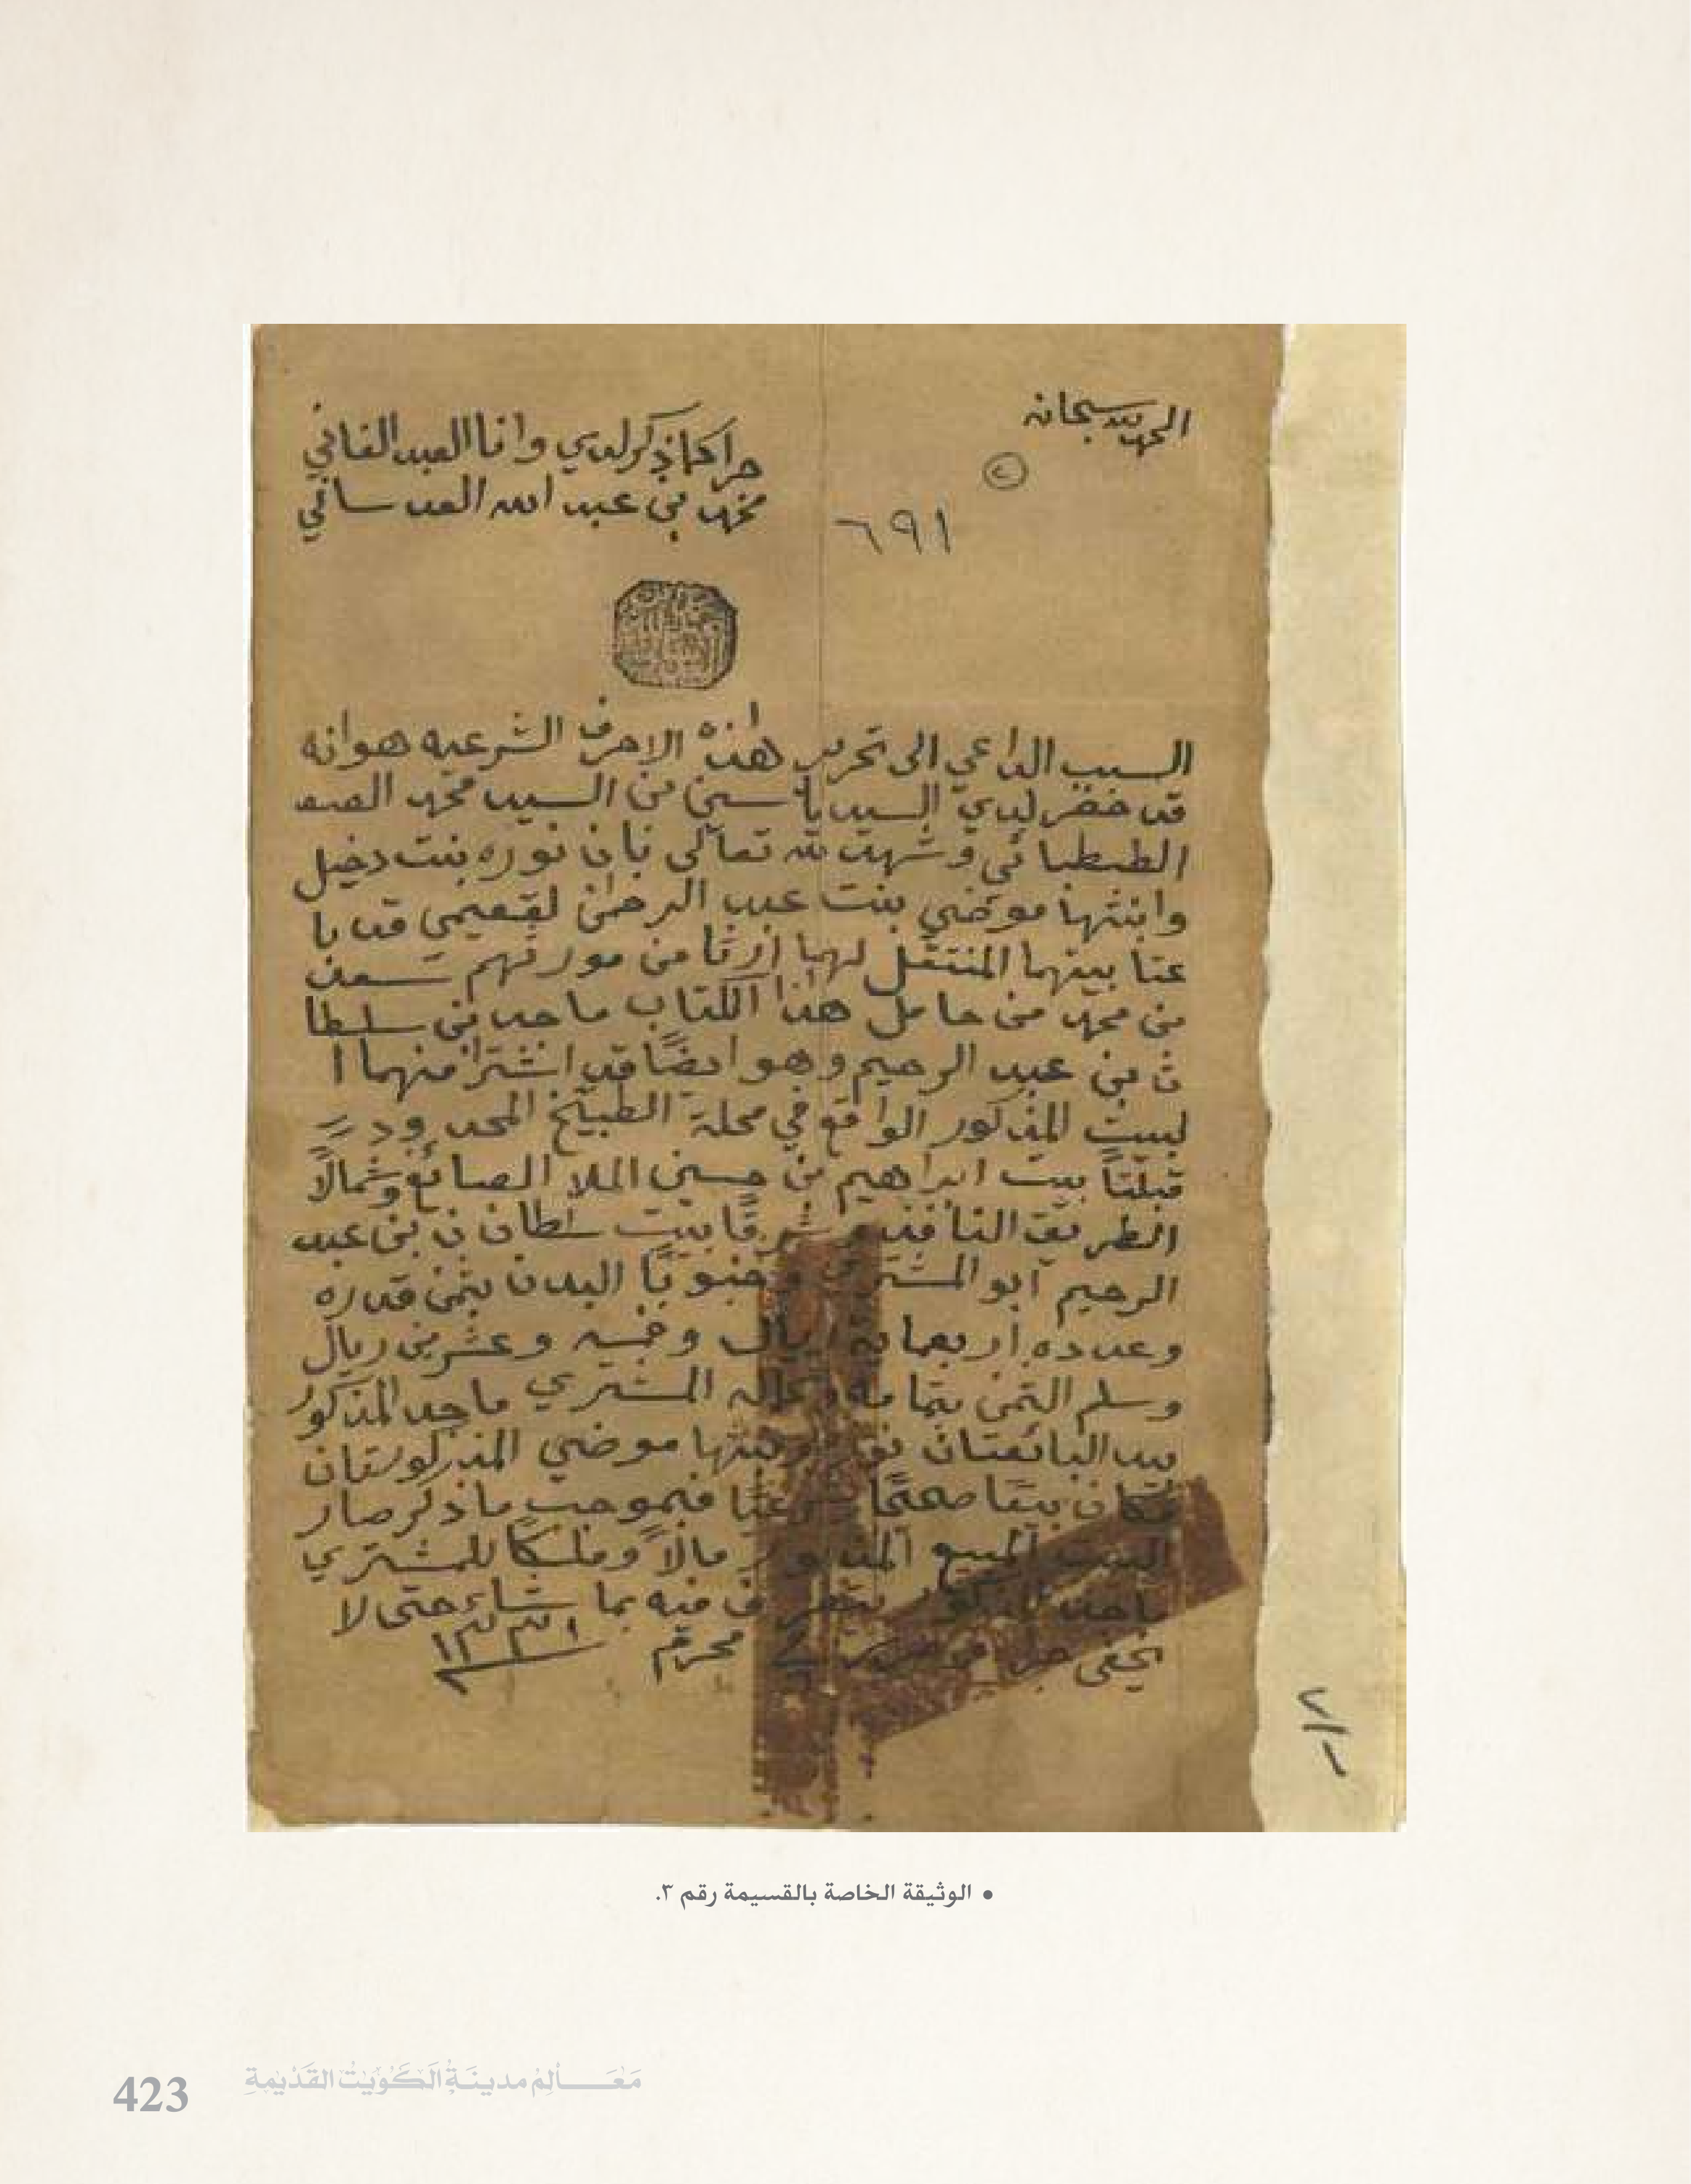 الحمد لله سبحانه
٢
٦٩١
جرا كما ذكر لدي وانا العبد الفاني
محمد بن عبد الله العدساني
السبب الداعي الى تحرير هذه الاحرف الشرعيه هو انه
قد حضر لدي السيد ياسين بن السيد محمد
الطبطبائي وشهد لله تعالى بان نوره بنت دخيل
وابنتها موضي بنت عبد الرحمن لقعيمي قد با
عتا بيتهما المنتقل لهما ارثا من مورثهم سعد
بن محمد من حامل هذا الكتاب ماجد بن سلطا
ن بن عبد الرحيم وهو ايضًا قد اشترا منهما ا
لبيت المذكور الواقع في محلة الطبيخ المحدود
قبلتاً بيت ابراهيم بن حسين الملا الصائغ وشمالًا
الطريق النافذ و شرقًا بيت سلطان ن بن عبد
الرحيم ابو المشتري وجنوبًا البدن بثمن قدره
وعدده اربعمائة ريال وخمسه وعشرين ريال
وسلم الثمن بتمامه وكماله المشتري ماجد المذكور
بيد البائعتان نوره وبنتها موضي المذكورتان
فكان بيعًا صحيحًا شرعيًا فبموجب ما ذكر صار
البيت المبيع المذكور مالًا وملكًا للمشتري
ماجد المذكور يتصرف فيه بما شاء حتى لا
يخفى جرا وحرر في محرم ١٣٣١
٧/٣
• الوثيقة الخاصة بالقسيمة رقم ٣.
423
مَعَالِم مدينَة الكُوَيْت القَديْمةِ